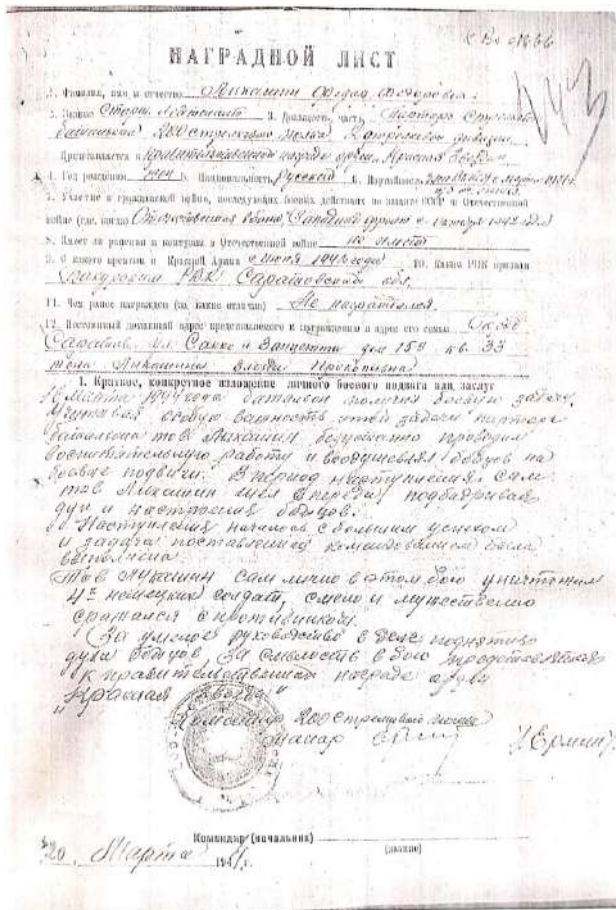 НАГРАДНОЙ ЛИСТ
1. Фамилия, имя и отчество Лукашин Федор Федорович
2. Звание Старш. Лейтенант 3. Должность, часть, Парторг Стрелков.
батальона 200 стрелкового полка дивизии
Представляется к Правительственной награде орден „Красная Звезда“
4. Год рождения 5. Национальность Русский 6. Партийность
7. Участие в гражданской войне, последующих боевых действиях по защите СССР и Отечественной
войне (где, когда) Отечественная война, Западный фронт с 1942 года
8. Имеет ли ранения и контузии в Отечественной войне не имеет
9. С какого времени в Красной Армии с 194 года 10. Каким РВК призван
РВК Саратовской обл.
11. Чем ранее награжден (за какие отличия) Не награждался.
12. Постоянный домашний адрес представляемого к награждению и адрес его семьи
Саратов, ул. Сакко и Ванцетти дом 153 кв. 33
жена Лукашина Прокопьевна
I. Краткое, конкретное изложение личного боевого подвига или заслуг
Марта 1944 года батальон получил боевую задачу.
Учитывая особую важность этой задачи парторг
батальона тов Лукашин безустанно проводил
воспитательную работу и воодушевлял бойцов на
боевые подвиги. В период наступления сам
тов Лукашин шел впереди, подбадривая
дух и настроение бойцов.
Наступление началось с большим успехом
и задача поставленная командованием была
выполнена
Тов Лукашин сам лично в этом бою уничтожил
4х немецких солдат, смело и мужественно
сражался с противником.
За умелое руководство в деле поднятия
духа бойцов за смелость в бою представляется
к правительственной награде ордену
„Красная Звезда“
Командир 200 стрелкового полка
майор
Командир (начальник)
(звание)
20 Марта 194 г.